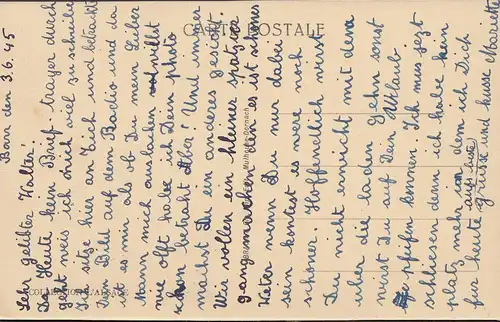 CARTE POSTALE
den 3.6.45
Sehr gelibter Walter!
Da Heute kein Brief trayer durch
geht weis ich nich viel zu schreiben
Ich sitze hier an Tich und betracht
Dein Bild auf dem Radio und da
ist es mir als ob Du mein Liber
Mann mich auslachen willst
wie offt habe ich Dein photo
schon betracht Und imer
machst Du ein anderes gesicht.
Wir wollen ein kleiner spatzier
gang machen den es ist schönes
Weter wenn Du nur dabei
sein kontest es were noch
schöner. wirst
Du nicht erwicht mit dem
uber die laden Gehn sonst
wirst Du auf Dein
pfeifen können. Ich mus jezt
schliesen denn ich habe kein
platz mehr in dem ich Dich
fur heute grüsse und kusse